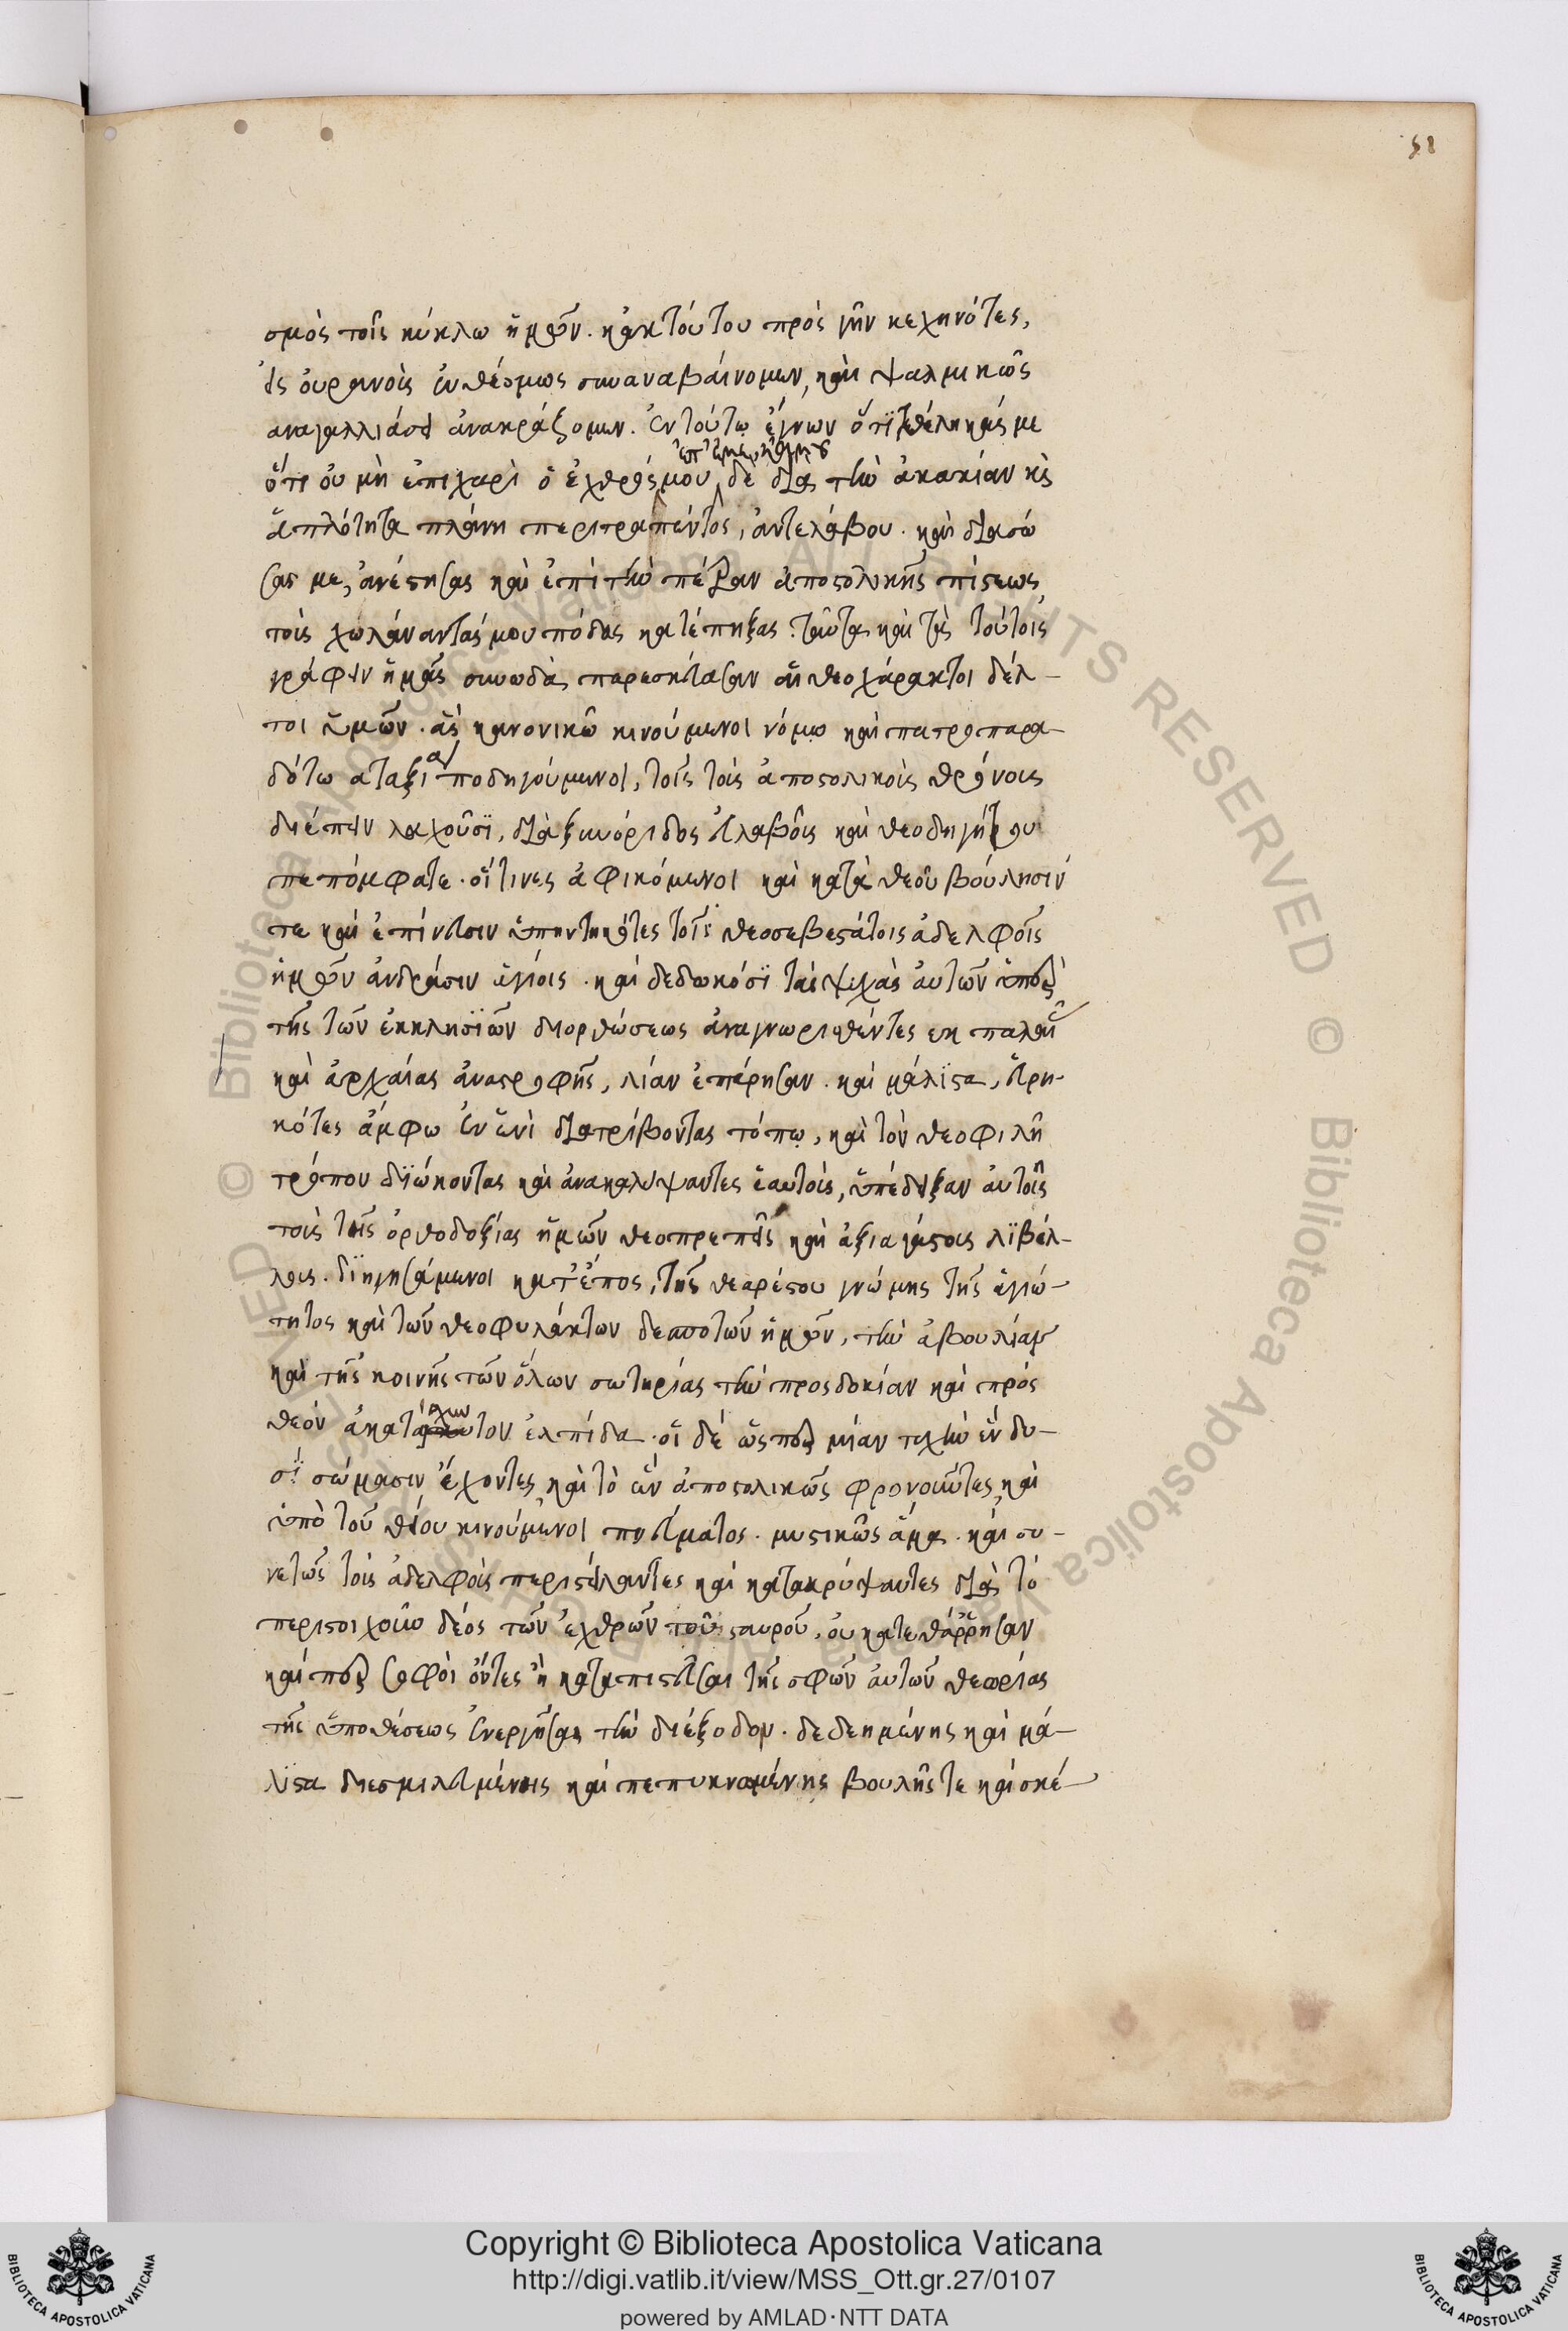 51
σμὸς τοῖς κύκλω ἡμῶν. κἀκ τούτου πρὸς γῆν κεχηνότες,
εἰς οὐρανοὺς ἐνθέσμως συναναβαίνομεν, καὶ ψαλμικῶς
αναγαλλιάσει ἀνακράζομεν. ἐν τούτω ἔγνων ὅτι τεθέληκάς με
ἐπ' ἐμε. κἀμου
ὅτι οὐ μὴ ἐπιχαρὶ ὁ ἐχθρός μου δὲ δια τὴν ἀκακίαν κὶς
ἁπλότητα πλάνη περιτραπέντος, ἀντελάβου. καὶ διασώ
σας με, ἀνέστησας καὶ ἐπὶ τὴν πέτραν ἀποστολικῆς πίστεως,
τοὺς χωλάναντάς μου πόδας κατέπηξας. ταῦτα καὶ τὰ τούτοις
γράφειν ἡμᾶς συνωδὰ παρεσκεύασαν αἱ θεοχάρακτοι δέλ-
τοι ὑμῶν. ἃς κανονικῶ κινούμενοι νόμω καὶ πατροπαρα-
δότω αταξία ποδηγούμενοι, τοῖς τοὺς ἀποστολικοὺς θρόνους
διέπειν λαχοῦσϊ, διὰ ξυνόριδος εὐλαβοῦς καὶ θεοδηγήτου
πεπόμφατε. οἵτινες ἀφικόμενοι καὶ κατὰ θεοῦ βούλησίν
τε καὶ ἐπίνευσιν ὑπηντηκότες τοῖς θεοσεβεστάτοις ἀδελφοῖς
ἡμῶν ἀνδράσιν ἁγίοις. καὶ δεδωκόσϊ τὰς ψυχὰς αὐτῶν ὑπὲρ
τῆς τῶν ἐκκλησϊῶν διορθώσεως ἀναγνωρισθέντες εκ παλαιᾶς
καὶ ἀρχαίας ἀναστροφῆς, λίαν ἐπάρησαν. καὶ μάλϊστα, εὑρη-
κότες ἄμφω ἐν ἑνὶ διατρίβοντας τόπω, καὶ τὸν θεοφιλῆ
τρόπον διώκοντας καὶ ἀνακαλύψαντες ἑαυτοὺς, ὑπέδειξαν αὐτοῖς
τοὺς τῆς ὀρθοδοξίας ἡμῶν θεοπρεπεῖς καὶ ἀξιαγάστους λϊβέλ-
λους. διηγησάμενοι κατ' ἔπος, τῆς θεαρέστου γνώμης τῆς ἁγιώ-
τητος καὶ τῶν θεοφυλάκτων δεσποτῶν ἡμῶν, τὴν ἀβουλίαν
καὶ τῆς κοινῆς τῶν ὅλων σωτηρίας τὴν προσδοκίαν καὶ πρὸς
θεὸν ἀκαταίσχυντον ἐλπίδα. οἱ δέ ὥσπερ μίαν ψυχὴν ἐν δυ-
σϊ σώμασιν ἔχοντες, καὶ τὸ ἓν ἀποστολικῶς φρονοῦντες, καὶ
ὑπὸ τοῦ θείου κινούμενοι πνεύματος. μυστικῶς ἅμα. καὶ συ-
νετῶς τοὺς ἀδελφοὺς περιστείλαντες καὶ κατακρύψαντες διὰ τὸ
περιστοιχοῦν δέος τῶν ἐχθρῶν τοῦ σταυροῦ, οὐ κατεθάῤῥησαν
καίπερ σοφοὶ ὄντες ἢ καταπιστεῦσαι τῆς σφῶν αὐτῶν θεωρίας
τῆς ὑποθέσεως ἐνεργῆσαι τὴν διέξοδον. δεδεημένης καὶ μά-
λϊστα διεσμιλευμένης καὶ πεπυκνωμένης βουλῆς τε καὶ σκέ-
Copyright © Biblioteca Apostolica Vaticana
http://digi.vatlib.it/view/MSS_Ott.gr.27/0107
powered by AMLAD·NTT DATA